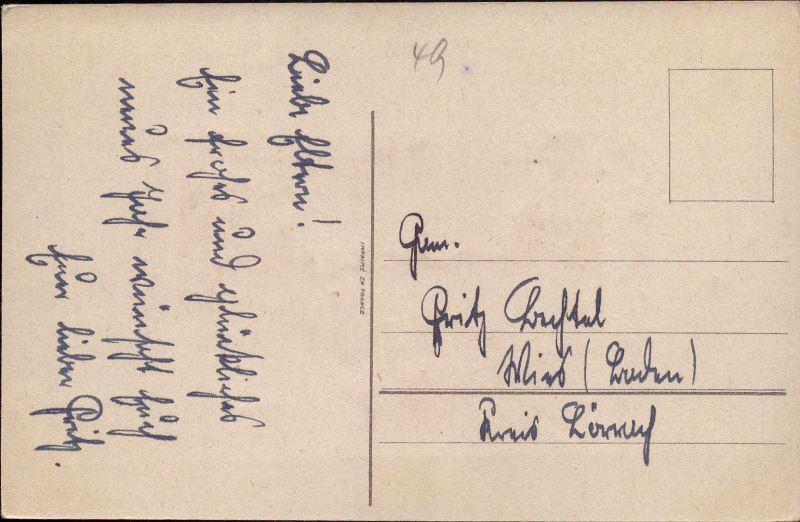 Liebe Eltern!
Ein frohes und glückliches
neues Jahr wünscht Euch
Euer lieber Fritz.
49
IMPRIMÉ EN FRANCE
Fam.
Fritz Bechtel
Wies (Baden)
Kreis Lörrach